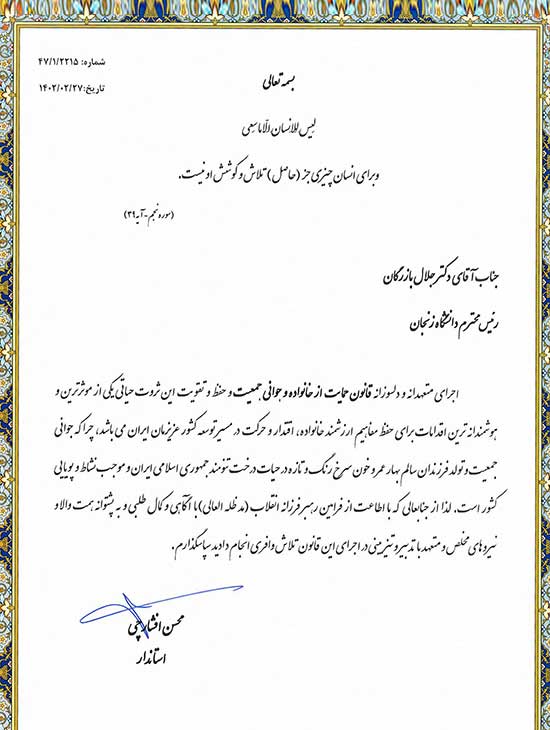 شماره: ۴۷/۱/۲۲۱۵
تاریخ: ۱۴۰۲/۰۲/۲۷
بسمه تعالی
لیس للانسان الا ما سعی
و برای انسان چیزی جز (حاصل) تلاش و کوشش او نیست.
(سوره نجم-آیه ۳۹)
جناب آقای دکتر جلال بازرگان
رئیس محترم دانشگاه زنجان
اجرای متعهدانه و دلسوزانه قانون حمایت از خانواده و جوانی جمعیت و حفظ و تقویت این ثروت حیاتی یکی از موثرترین و
هوشمندانه ترین اقدامات برای حفظ مفاهیم ارزشمند خانواده، اقتدار و حرکت در مسیر توسعه کشور عزیزمان ایران می باشد، چرا که جوانی
جمعیت و تولد فرزندان سالم بهار عمر و خون سرخ رنگ و تازه در حیات درخت تنومند جمهوری اسلامی ایران و موجب نشاط و پویایی
کشور است. لذا از جنابعالی که با اطاعت از فرامین رهبر فرزانه انقلاب (مد ظله العالی) با آگاهی و کمال طلبی و به پشتوانه همت والا و
نیروهای مخلص و متعهد با تدبیر و تیزبینی در اجرای این قانون تلاش وافری انجام دادید سپاسگذارم.
محسن افشارچی
استاندار